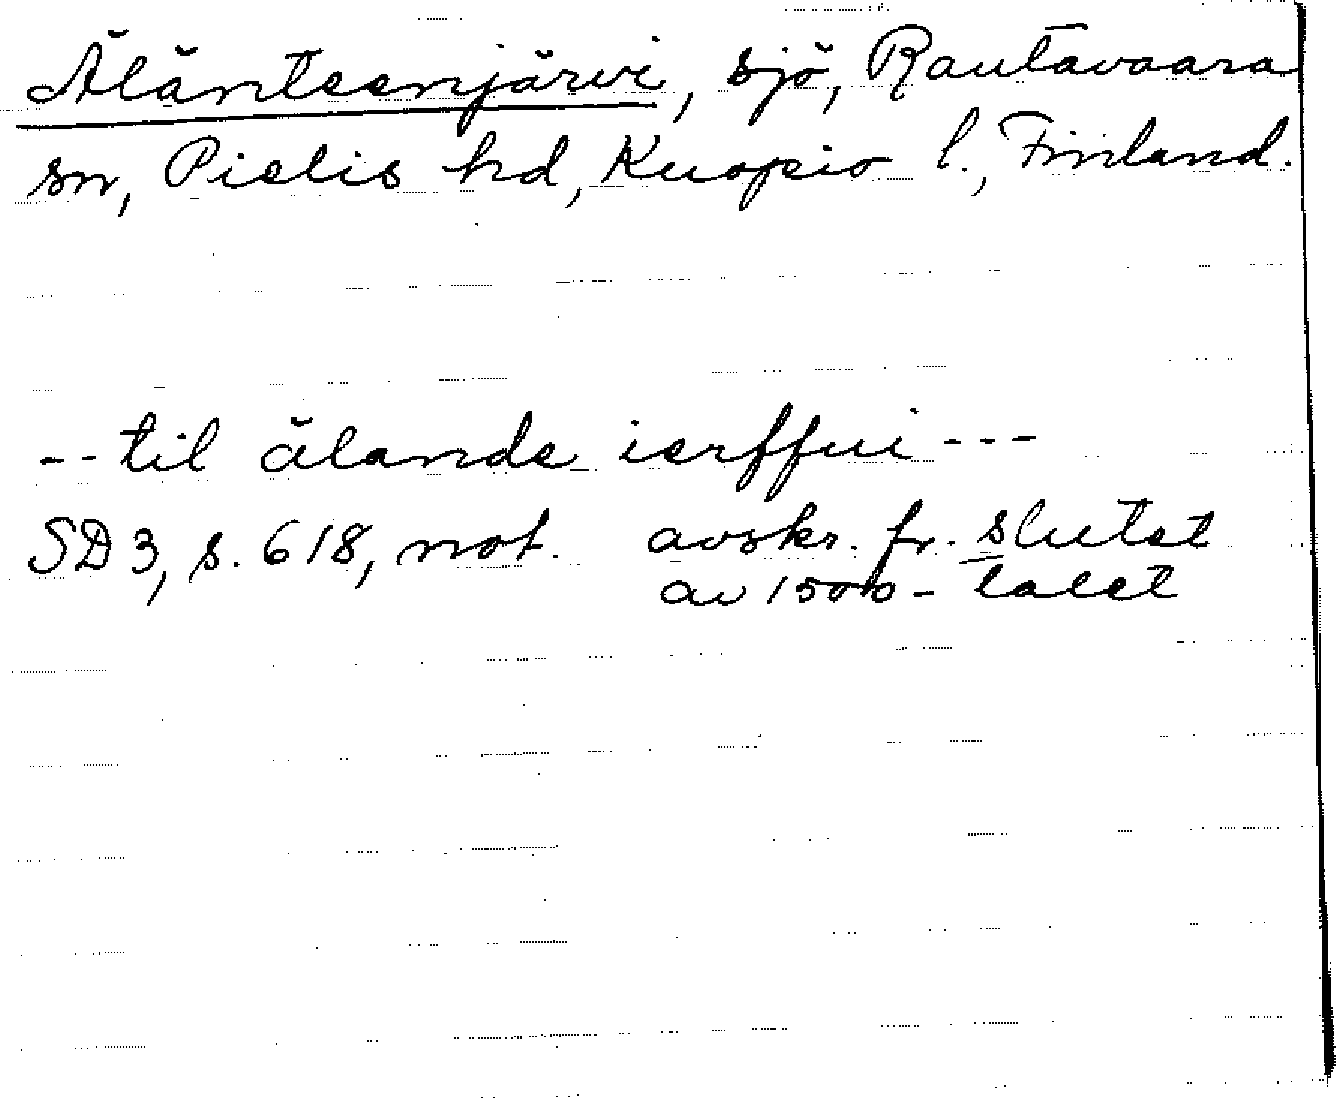 Älänteenjärvi, sjö, Rautavaara
sn, Pielis hd, Kuopio l., Finland.
-- til älande ierffui ---
SD 3, s. 618, not. avskr. fr. slutet
av 1500-talet